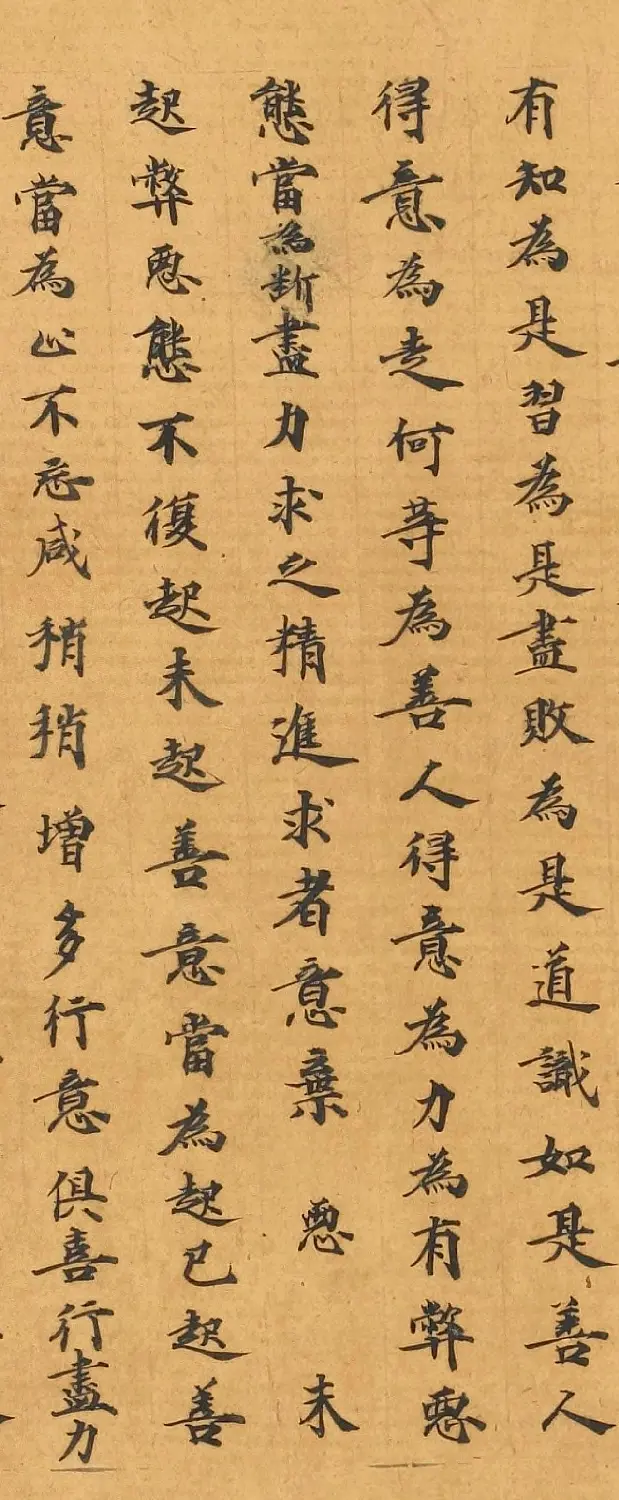 有知為是習為是盡敗為是道識如是善人
得意為走何等為善人得意為力為有弊惡
態當為断盡力求之精進求者意棄惡未
起弊惡態不復起未起善意當為起已起善
意當為止不忘咸稍稍增多行意俱喜行盡力